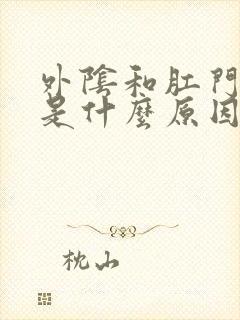 外陰和肛門
是什麼原因
枕山